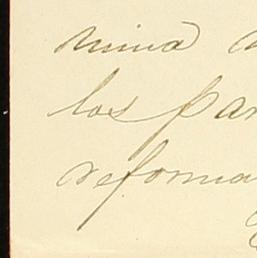 mina
los par
reforma